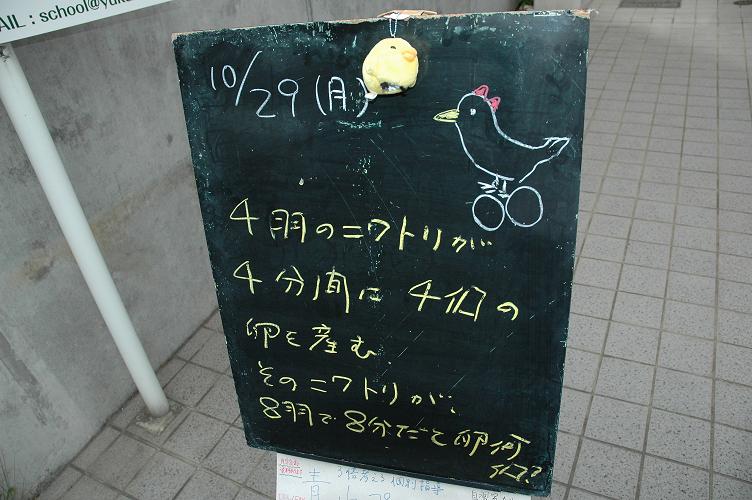 AIL : school@yuk
10/29(月)
4羽のニワトリが
4分間に4個の
卵を産む
そのニワトリが、
8羽で8分だと卵何
個?
個別指導